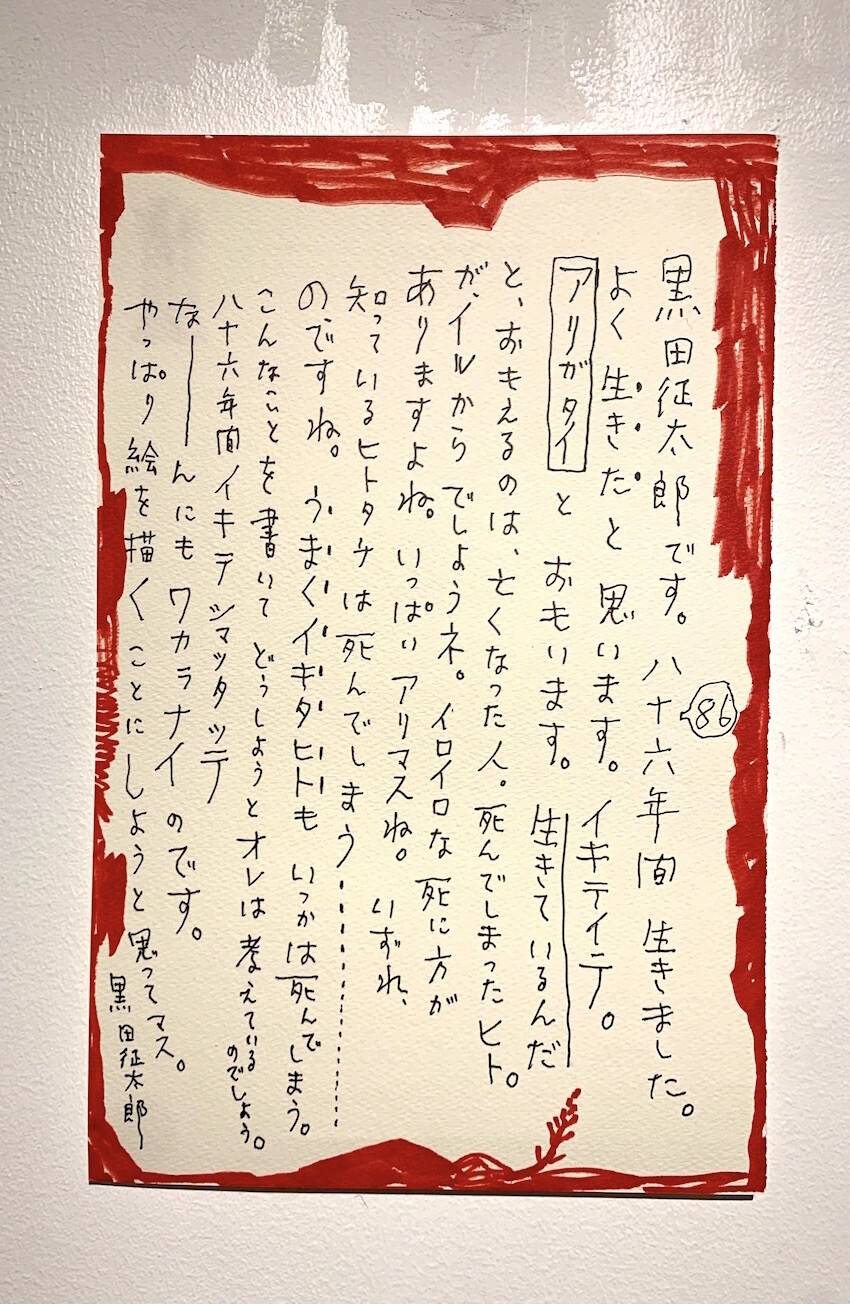 黒田征太郎です。八十六年間 生きました。
86
よく 生きた と 思います。イキテイテ。
アリガタイ と おもいます。生きているんだ
と、おもえるのは、亡くなった人。死んでしまったヒト。
が、イルから でしょうネ。イロイロな 死に方が
ありますよね。いっぱい アリマスね。いずれ、
知っているヒトタチは 死んでしまう…………
の、ですね。うまくイキタヒトも いつかは 死んで しまう。
こんなことを 書いて どうしようと オレは 考えている のでしょう。
八十六年間 イキテ シマッタッテ
な———んにも ワカラナイ のです。
やっぱり 絵を 描く ことに しようと 思ってマス。
黒田征太郎